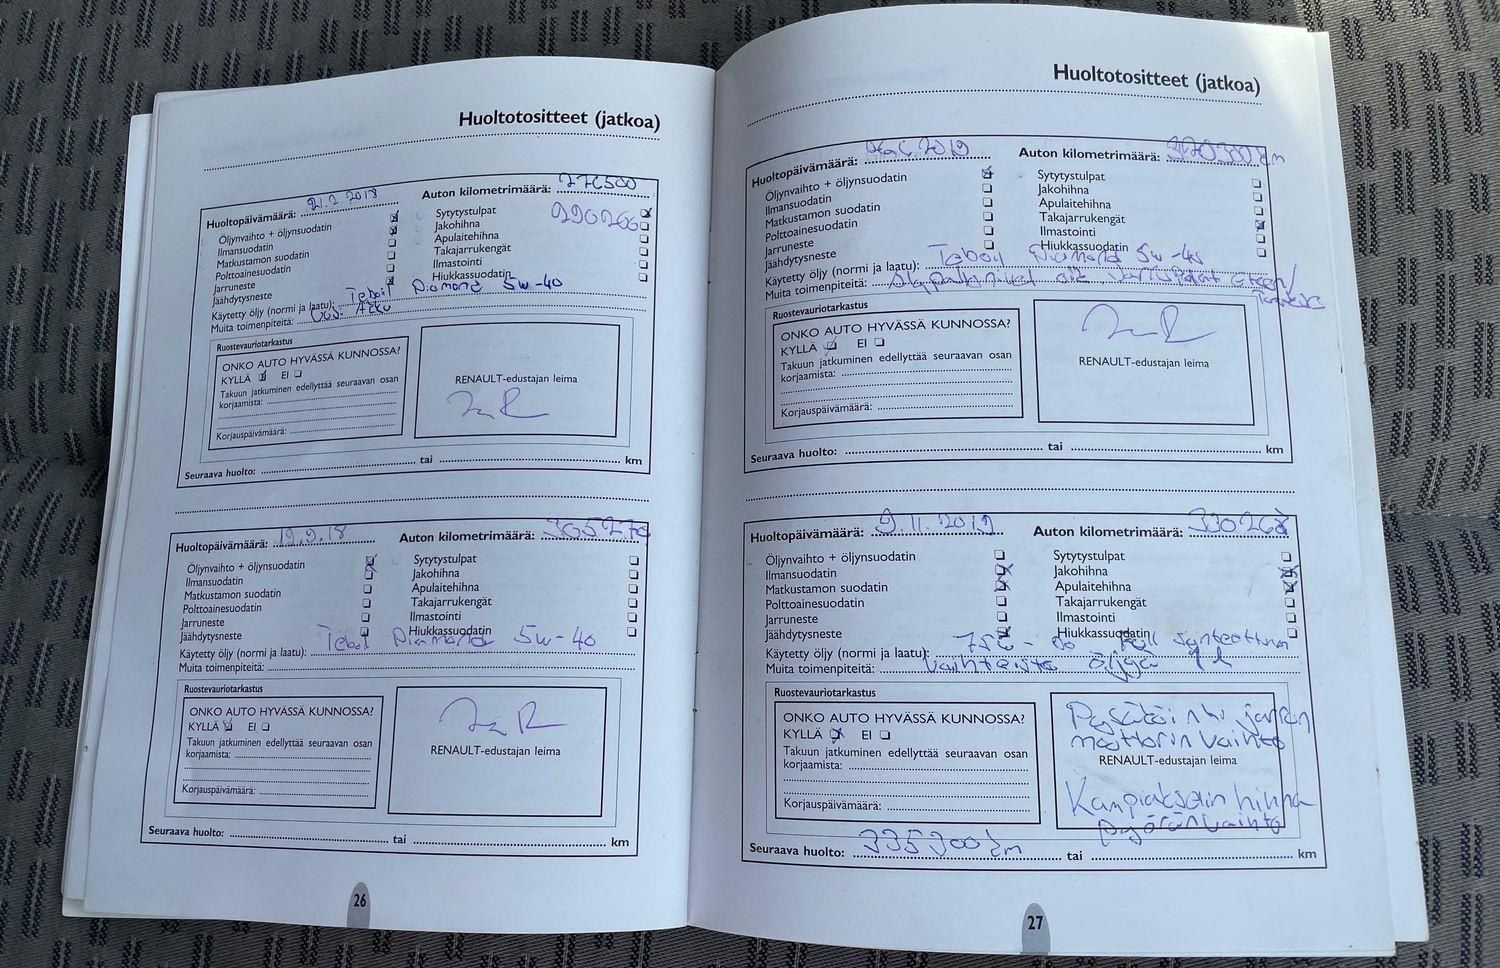 Huoltotositteet (jatkoa)
Huoltopäivämäärä: 21.2 2018 Auton kilometrimäärä: 276500
Öljynvaihto + öljynsuodatin Sytytystulpat 290266
Ilmansuodatin Jakohihna
Matkustamon suodatin Apulaitehihna
Polttoainesuodatin Takajarrukengät
Jarruneste Ilmastointi
Jäähdytysneste Hiukkassuodatin
Käytetty öljy (normi ja laatu): Teboil Diamond 5w-40
Muita toimenpiteitä: Uusi Akku
Ruostevauriotarkastus
ONKO AUTO HYVÄSSÄ KUNNOSSA?
KYLLÄ EI
Takuun jatkuminen edellyttää seuraavan osan
korjaamista:
Korjauspäivämäärä:
RENAULT-edustajan leima
Seuraava huolto: tai km
Huoltopäivämäärä: 19.9.18 Auton kilometrimäärä: 305270
Öljynvaihto + öljynsuodatin Sytytystulpat
Ilmansuodatin Jakohihna
Matkustamon suodatin Apulaitehihna
Polttoainesuodatin Takajarrukengät
Jarruneste Ilmastointi
Jäähdytysneste Hiukkassuodatin
Käytetty öljy (normi ja laatu): Teboil Diamond 5w-40
Muita toimenpiteitä:
Ruostevauriotarkastus
ONKO AUTO HYVÄSSÄ KUNNOSSA?
KYLLÄ EI
Takuun jatkuminen edellyttää seuraavan osan
korjaamista:
Korjauspäivämäärä:
RENAULT-edustajan leima
Seuraava huolto: tai km
26
Huoltotositteet (jatkoa)
Huoltopäivämäärä: 2019 Auton kilometrimäärä: 320300 km
Öljynvaihto + öljynsuodatin Sytytystulpat
Ilmansuodatin Jakohihna
Matkustamon suodatin Apulaitehihna
Polttoainesuodatin Takajarrukengät
Jarruneste Ilmastointi
Jäähdytysneste Hiukkassuodatin
Käytetty öljy (normi ja laatu): Teboil Diamond 5w-40
Muita toimenpiteitä: Alapallonivel
Ruostevauriotarkastus
ONKO AUTO HYVÄSSÄ KUNNOSSA?
KYLLÄ EI
Takuun jatkuminen edellyttää seuraavan osan
korjaamista:
Korjauspäivämäärä:
RENAULT-edustajan leima
Seuraava huolto: tai km
Huoltopäivämäärä: 9.11.2019 Auton kilometrimäärä: 330268
Öljynvaihto + öljynsuodatin Sytytystulpat
Ilmansuodatin Jakohihna
Matkustamon suodatin Apulaitehihna
Polttoainesuodatin Takajarrukengät
Jarruneste Ilmastointi
Jäähdytysneste Hiukkassuodatin
Käytetty öljy (normi ja laatu): 75w-80 Full synteettinen
Muita toimenpiteitä: Vaihteisto öljyä 1 l
Ruostevauriotarkastus
ONKO AUTO HYVÄSSÄ KUNNOSSA?
KYLLÄ EI
Takuun jatkuminen edellyttää seuraavan osan
korjaamista:
Korjauspäivämäärä:
Pysäköinti jarrun
moottorin vaihto
RENAULT-edustajan leima
Kampiakselin hihna
pyörän vaihto
Seuraava huolto: 335300 km tai km
27